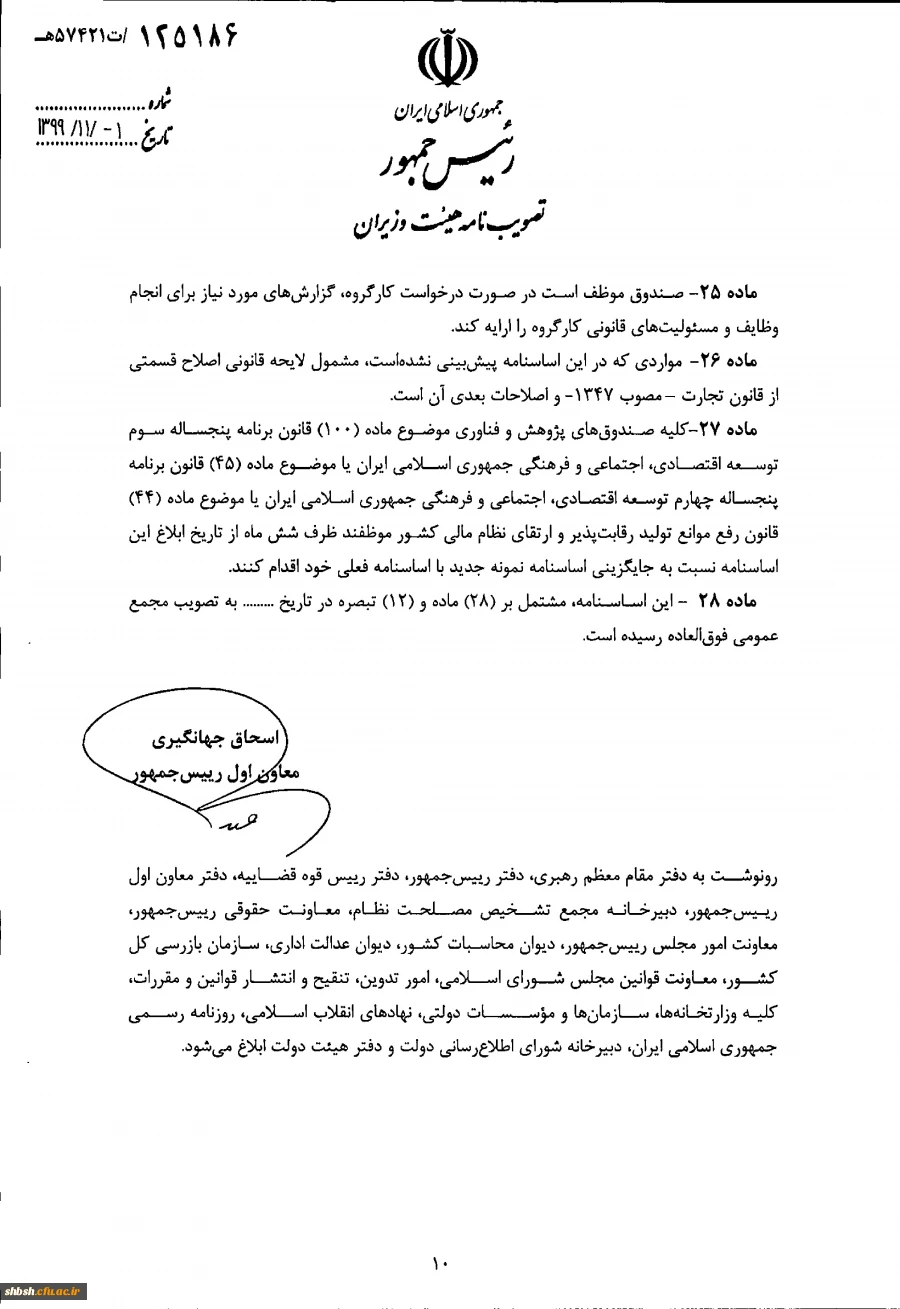 ۱۲۵۱۸۶ /ت۵۷۴۲۱هـ
جمهوری اسلامی ایران
شماره
رئیس جمهور
تاریخ ۱۳۹۹/۱۱/۰۱
تصویب نامه هیئت وزیران
ماده ۲۵- صندوق موظف است در صورت درخواست کارگروه، گزارش‌های مورد نیاز برای انجام
وظایف و مسئولیت‌های قانونی کارگروه را ارایه کند.
ماده ۲۶- مواردی که در این اساسنامه پیش‌بینی نشده‌است، مشمول لایحه قانونی اصلاح قسمتی
از قانون تجارت –مصوب ۱۳۴۷- و اصلاحات بعدی آن است.
ماده ۲۷-کلیه صندوق‌های پژوهش و فناوری موضوع ماده (۱۰۰) قانون برنامه پنجساله سوم
توسعه اقتصادی، اجتماعی و فرهنگی جمهوری اسلامی ایران یا موضوع ماده (۴۵) قانون برنامه
پنجساله چهارم توسعه اقتصادی، اجتماعی و فرهنگی جمهوری اسلامی ایران یا موضوع ماده (۴۴)
قانون رفع موانع تولید رقابت‌پذیر و ارتقای نظام مالی کشور موظفند ظرف شش ماه از تاریخ ابلاغ این
اساسنامه نسبت به جایگزینی اساسنامه نمونه جدید با اساسنامه فعلی خود اقدام کنند.
ماده ۲۸ - این اساسنامه، مشتمل بر (۲۸) ماده و (۱۲) تبصره در تاریخ ........ به تصویب مجمع
عمومی فوق‌العاده رسیده است.
اسحاق جهانگیری
معاون اول رییس‌جمهور
رونوشت به دفتر مقام معظم رهبری، دفتر رییس‌جمهور، دفتر رییس قوه قضاییه، دفتر معاون اول
رییس‌جمهور، دبیرخانه مجمع تشخیص مصلحت نظام، معاونت حقوقی رییس‌جمهور،
معاونت امور مجلس رییس‌جمهور، دیوان محاسبات کشور، دیوان عدالت اداری، سازمان بازرسی کل
کشور، معاونت قوانین مجلس شورای اسلامی، امور تدوین، تنقیح و انتشار قوانین و مقررات،
کلیه وزارتخانه‌ها، سازمان‌ها و مؤسسات دولتی، نهادهای انقلاب اسلامی، روزنامه رسمی
جمهوری اسلامی ایران، دبیرخانه شورای اطلاع‌رسانی دولت و دفتر هیئت دولت ابلاغ می‌شود.
۱۰
shbsh.cfu.ac.ir